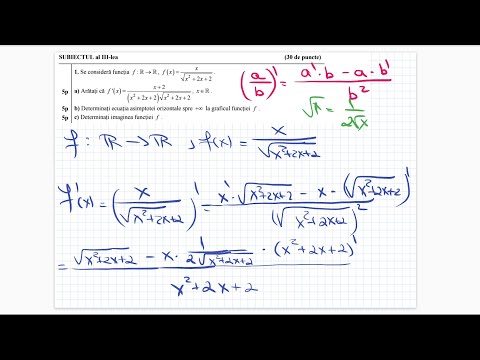 SUBIECTUL al III-lea (30 de puncte)
1. Se consideră funcția f : ℝ → ℝ, f(x) = x/√(x²+2x+2)
5p a) Arătați că f'(x) = (x+2)/((x²+2x+2)√(x²+2x+2)), x ∈ ℝ.
5p b) Determinați ecuația asimptotei orizontale spre +∞ la graficul funcției f.
5p c) Determinați imaginea funcției f.
(a/b)' = (a'·b − a·b')/b²
√x = 1/(2√x)
f : ℝ → ℝ, f(x) = x/√(x²+2x+2)
f'(x) = (x/√(x²+2x+2))' = (x'·√(x²+2x+2) − x·(√(x²+2x+2))')/(√(x²+2x+2))²
= (√(x²+2x+2) − x·1/(2√(x²+2x+2))·(x²+2x+2)')/(x²+2x+2)